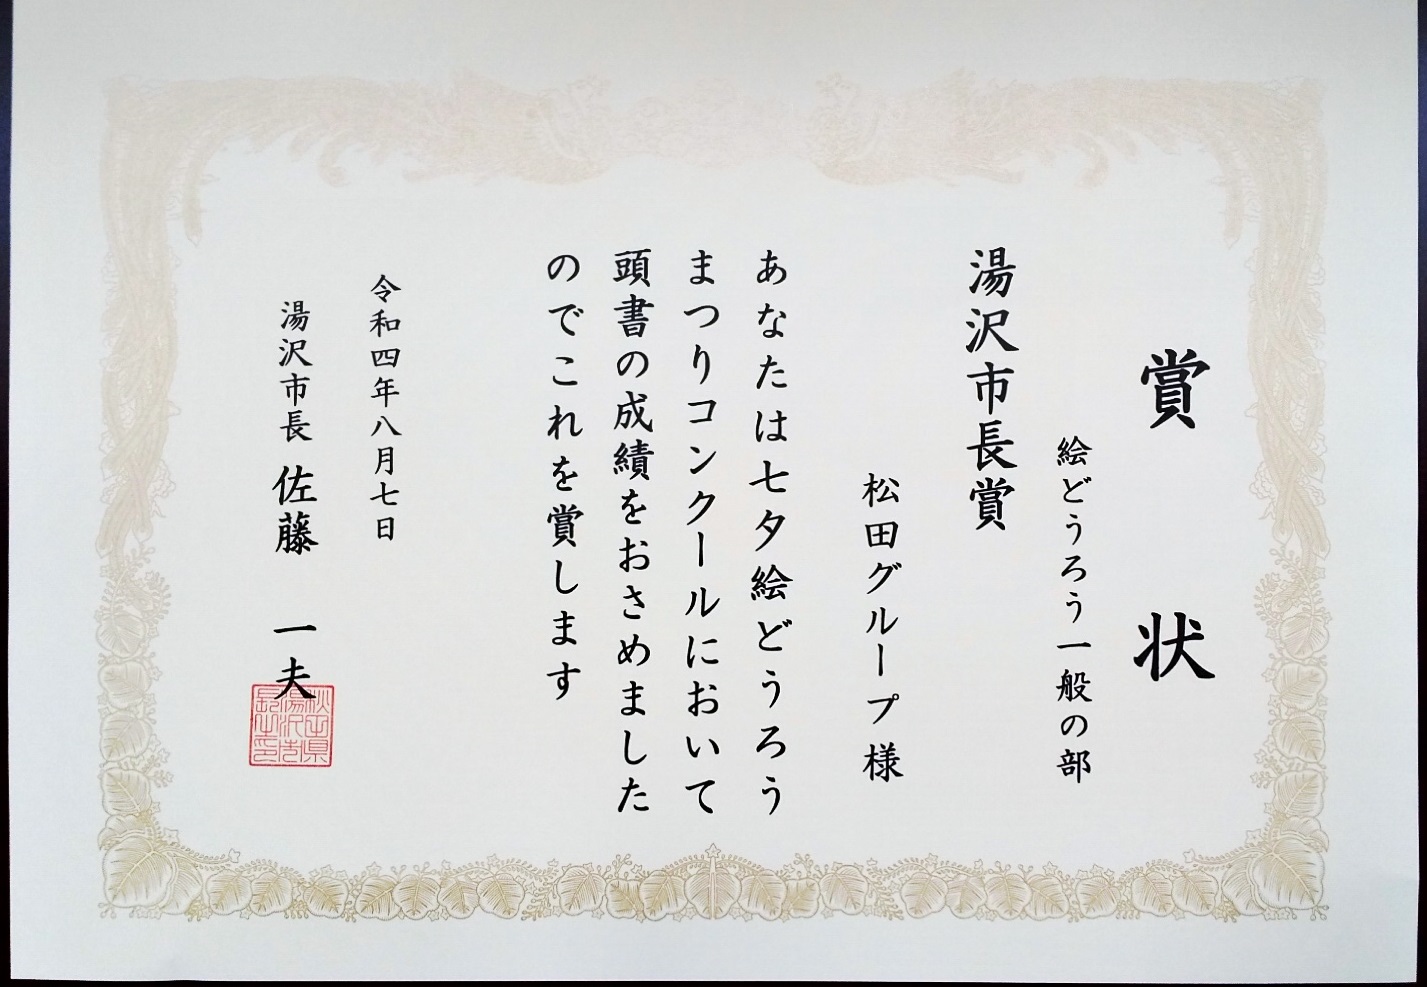 賞状
絵どうろう一般の部
湯沢市長賞
松田グループ様
あなたは七夕絵どうろう
まつりコンクールにおいて
頭書の成績をおさめました
のでこれを賞します
令和四年八月七日
湯沢市長 佐藤 一夫
秋田県
湯沢市
長之印